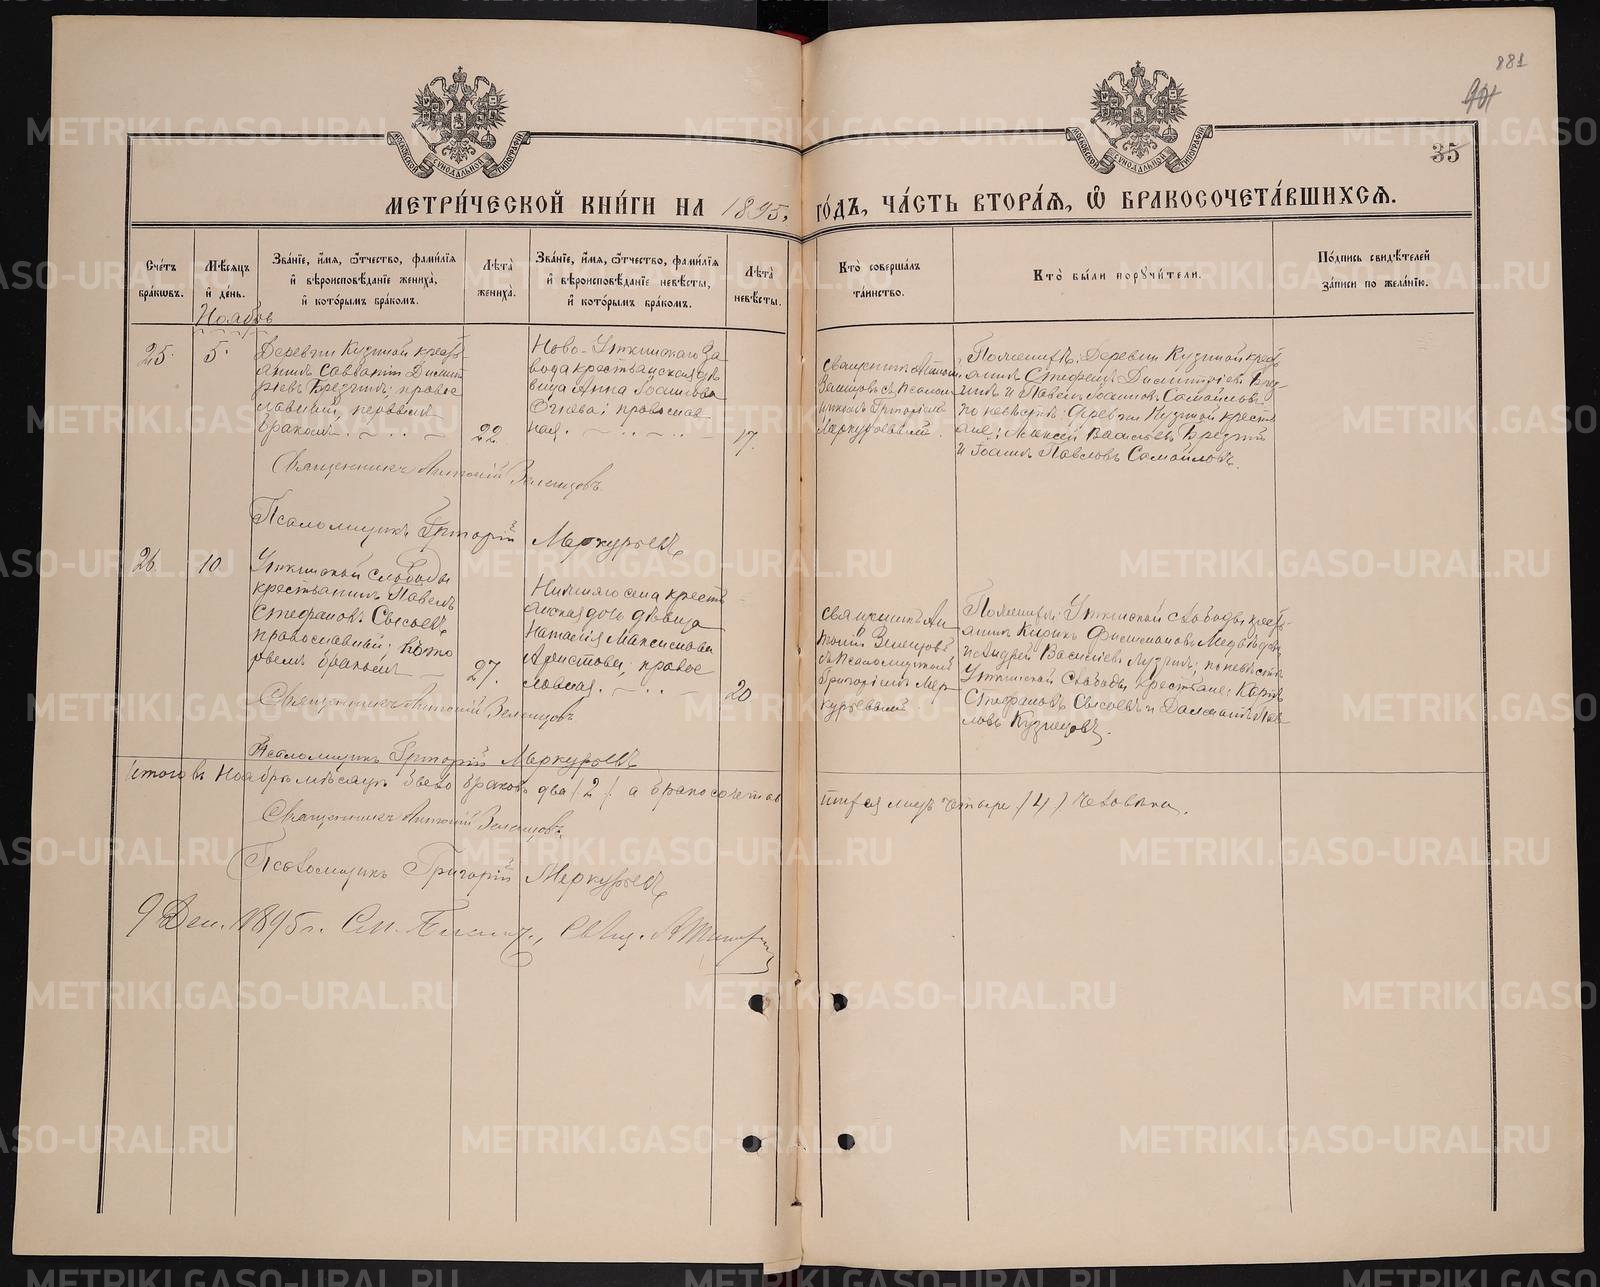 881
35
МОСКОВСКОЙ СѴНОДАЛЬНОЙ ТИПОГРАФІИ
МОСКОВСКОЙ СѴНОДАЛЬНОЙ ТИПОГРАФІИ
МЕТРИ́ЧЕСКОЙ КНИ́ГИ НА 1895. ГО́ДЪ, ЧА́СТЬ ВТОРА́Я, Ѽ БРАКОСОЧЕТА́ВШИХСЯ.
Счетъ бракѡвъ.
Мѣсяцъ и день.
Званіе, имя, ѿчество, фамилія и вѣроисповѣданіе жениха, и которымъ бракомъ.
Лѣта жениха.
Званіе, имя, ѿчество, фамилія и вѣроисповѣданіе невѣсты, и которымъ бракомъ.
Лѣта невѣсты.
Кто совершалъ таинство.
Кто были порꙋчители.
Подпись свидѣтелей записи по желанію.
Ноябрь
25.
5.
Деревни Кузиной кресть
янинъ Савватій Димит
ріевъ Бредгинъ, правос
лавный, первымъ
бракомъ.
22.
Ново-Уткинскаго За
вода крестьянская дѣ
вица Анна Іоаннова
Огнева; православ
ная.
17.
Священникъ Антоній
Зеленцовъ съ Псалом
щикомъ Григоріемъ
Меркурьевымъ.
По женихѣ: Деревни Кузиной крест
янинъ Стефанъ Димитріевъ Бред
гинъ и Павелъ Іоанновъ Самойловъ
по невѣстѣ: деревни Кузиной крестья
не: Алексѣй Васильевъ Бредгинъ
и Іоаннъ Павловъ Самойловъ.
Священникъ Антоній Зеленцовъ.
Псаломщикъ Григорій Меркурьевъ
26.
10.
Уткинской слободы
крестьянинъ Павелъ
Стефановъ Сысоевъ,
православный, вто
рымъ бракомъ
27.
Нижняго села крестья
нская дочь дѣвица
Наталія Максимова
Аристова, правос
лавная.
20
Священникъ Ан
тоній Зеленцовъ
съ Псаломщикомъ
Григоріемъ Мер
курьевымъ
По женихѣ: Уткинской слободы крест
янинъ Кирикъ Медвѣдевъ
и Андрей Васильевъ по невѣстѣ
Уткинской слободы крестьяне:
Стефановъ Сысоевъ и Далматъ Пав
ловъ Кузнецовъ.
Священникъ Антоній Зеленцовъ
Псаломщикъ Григорій Меркурьевъ
Итого въ Ноябрѣ мѣсяцѣ было браковъ два /2/ а бракосочетав
шихся лицъ четыре /4/ человѣка.
Священникъ Антоній Зеленцовъ.
Псаломщикъ Григорій Меркурьевъ
9 Дек. 1895 г.
METRIKI.GASO-URAL.RU